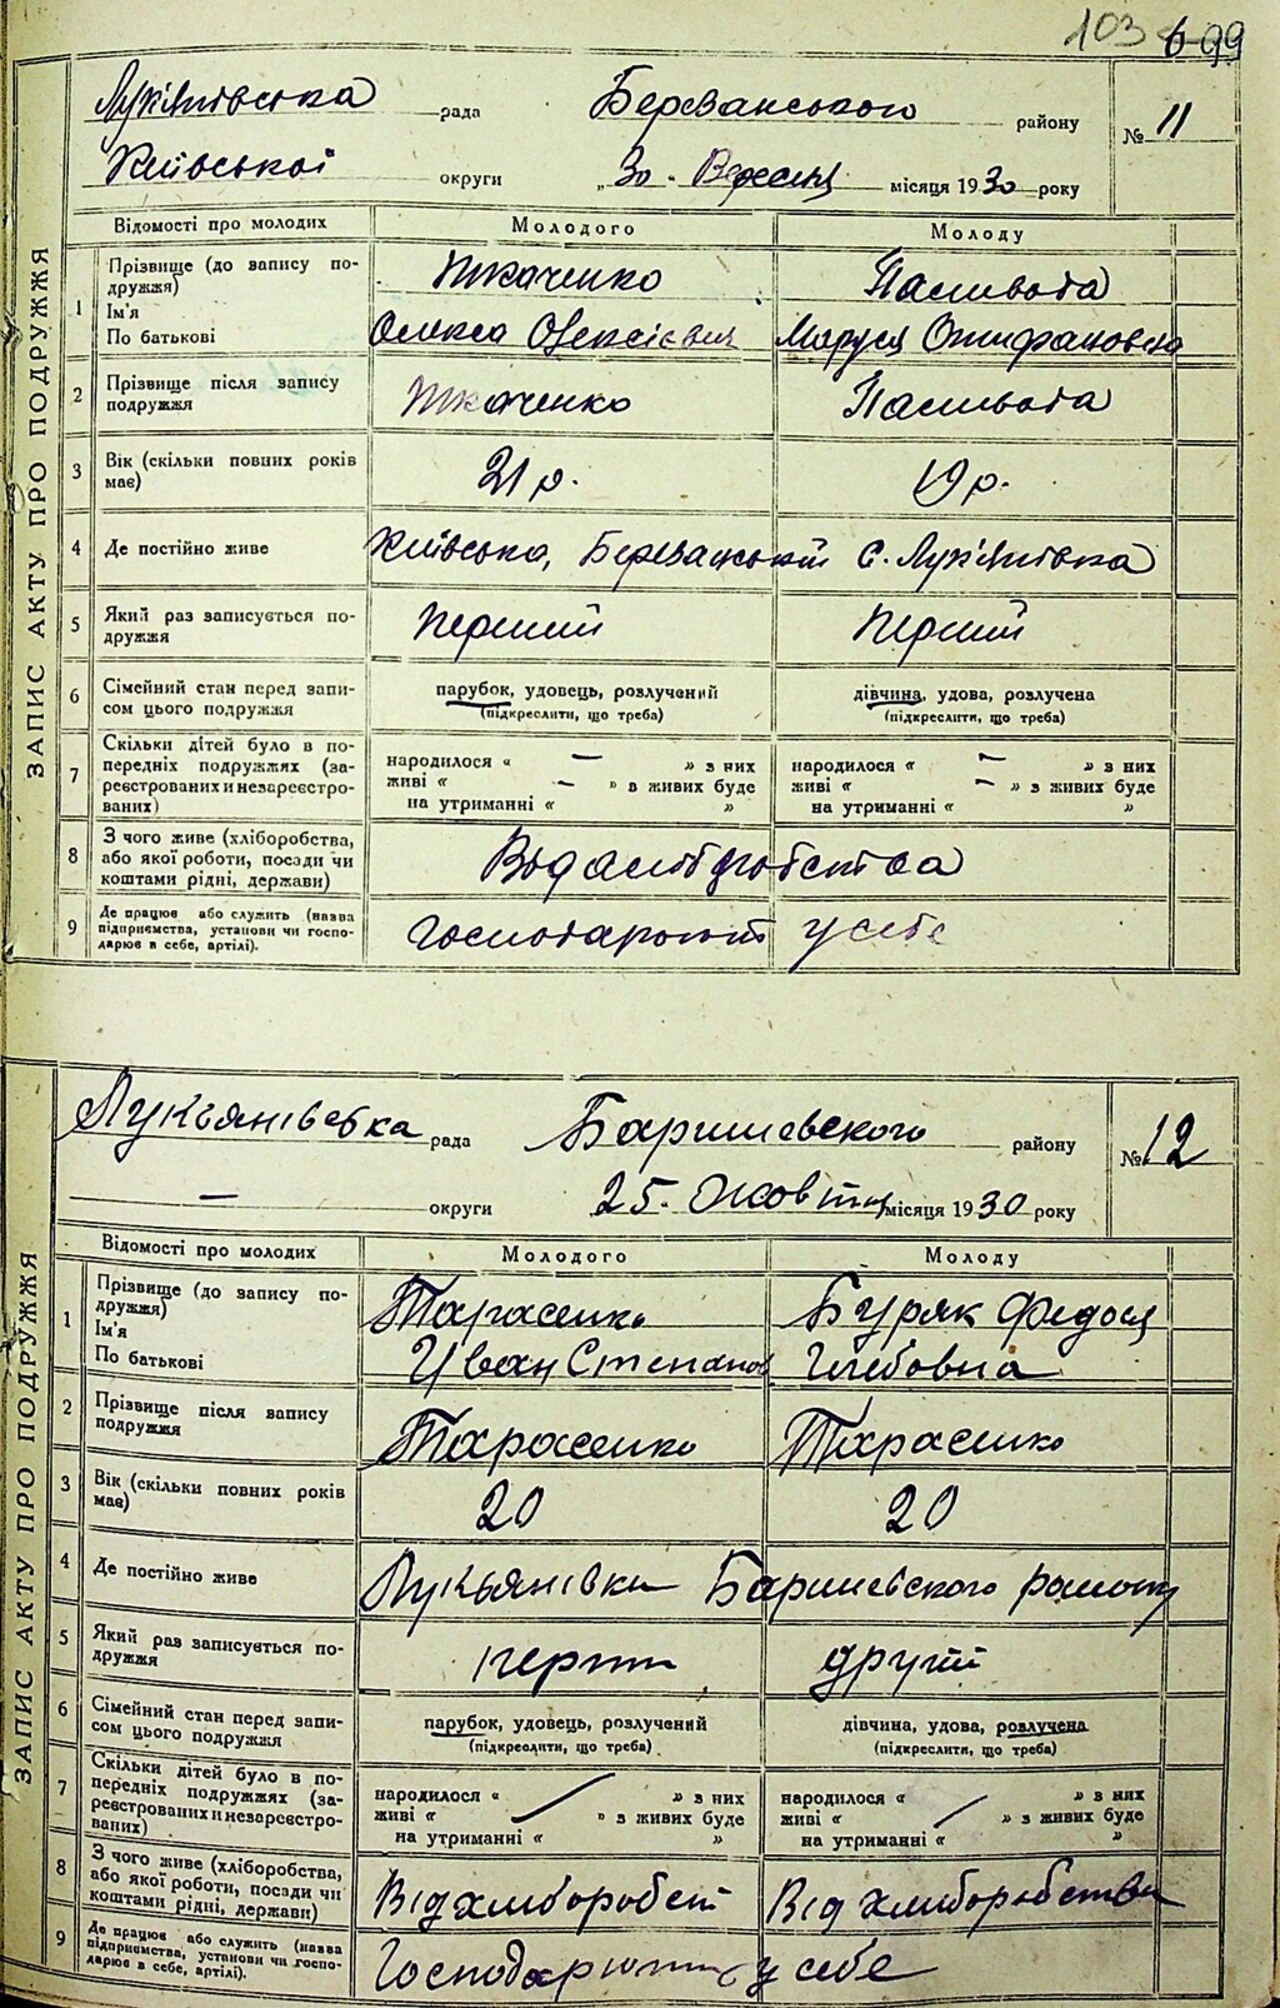 103 6 99
Лук'янівська рада Березанського району № 11
Київської округи „30. Вересня місяця 1930 року
ЗАПИС АКТУ ПРО ПОДРУЖЖЯ
Відомості про молодих Молодого Молоду
1 Прізвище (до запису по- Ткаченко Паливода
дружжя)
Ім'я
По батькові Олекса Олексієвич Маруся Онифрановна
2 Прізвище після запису Ткаченко Паливода
подружжя
3 Вік (скільки повних років 21 р. 19 р.
має)
4 Де постійно живе Київська, Березанський с. Лук'янівка
5 Який раз записується по- перший перший
дружжя
6 Сімейний стан перед запи- парубок, удовець, розлучений дівчина, удова, розлучена
сом цього подружжя (підкреслити, що треба) (підкреслити, що треба)
7 Скільки дітей було в по- народилося « — » з них народилося « — » з них
передніх подружжях (за- живі « — » з живих буде живі « — » з живих буде
реєстрованих и незареєстро- на утриманні « » на утриманні « »
ваних)
8 З чого живе (хліборобства, Від хліборобства
або якої роботи, посади чи
коштами рідні, держави)
9 Де працює або служить (назва Господарюють у себе
підприємства, установи чи госпо-
дарює в себе, артілі).
Лукьянівська рада Баришевского району № 12
— округи 25. Жовтня місяця 1930 року
ЗАПИС АКТУ ПРО ПОДРУЖЖЯ
Відомості про молодих Молодого Молоду
1 Прізвище (до запису по- Тарасенко Буряк Федося
дружжя)
Ім'я
По батькові Иван Степанов Глебовна
2 Прізвище після запису Тарасенко Тарасенко
подружжя
3 Вік (скільки повних років 20 20
має)
4 Де постійно живе Лукьянівки Баришевского району
5 Який раз записується по- другий
дружжя
6 Сімейний стан перед запи- парубок, удовець, розлучений дівчина, удова, розлучена
сом цього подружжя (підкреслити, що треба) (підкреслити, що треба)
7 Скільки дітей було в по- народилося « » з них народилося « » з них
передніх подружжях (за- живі « » з живих буде живі « » з живих буде
реєстрованих и незареєстро- на утриманні « » на утриманні « »
ваних)
8 З чого живе (хліборобства, Від хліборобст Від хліборобства
або якої роботи, посади чи
коштами рідні, держави)
9 Де працює або служить (назва Господарюють у себе
підприємства, установи чи госпо-
дарює в себе, артілі).